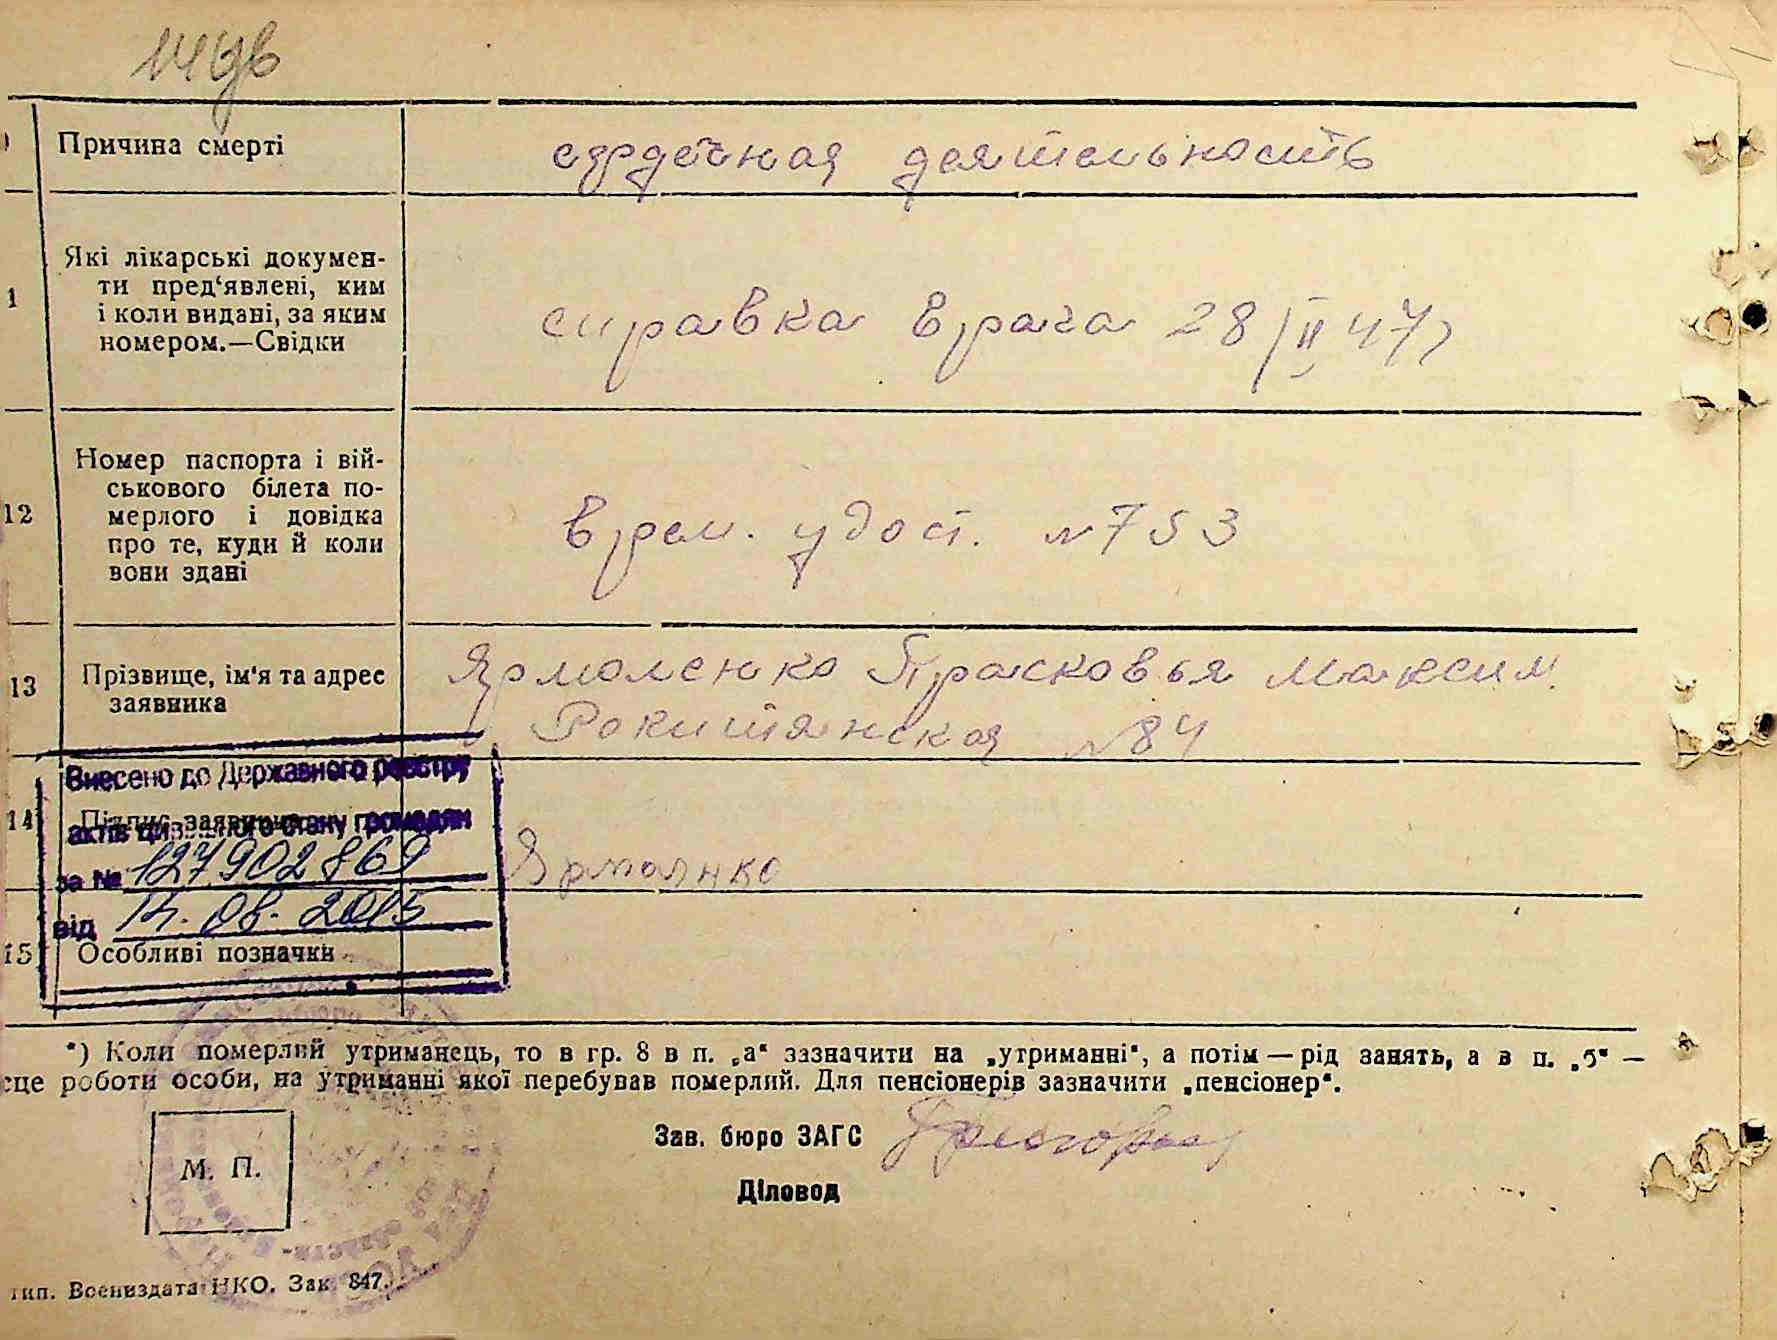 Причина смерті
сердечная деятельность
1
Які лікарські докумен-
ти пред‘явлені, ким
і коли видані, за яким
номером.—Свідки
справка врача 28/II 47г
12
Номер паспорта і вій-
ськового білета по-
мерлого і довідка
про те, куди й коли
вони здані
врем. удост. № 753
13
Прізвище, ім'я та адрес
заявника
Ярмоленко Прасковья Максим.
Рокитянская № 84
Внесено до Державного реєстру
14
Підпис заявника
актів цивільного стану громадян
за № 127902869
Ярмолнко
від 14.08.2015
15
Особливі позначки
*) Коли померлий утриманець, то в гр. 8 в п. „а“ зазначити на „утриманні“, а потім — рід занять, а в п. „б“ —
сце роботи особи, на утриманні якої перебував померлий. Для пенсіонерів зазначити „пенсіонер“.
Зав. бюро ЗАГС
М. П.
Діловод
тип. Воениздата НКО. Зак. 847.